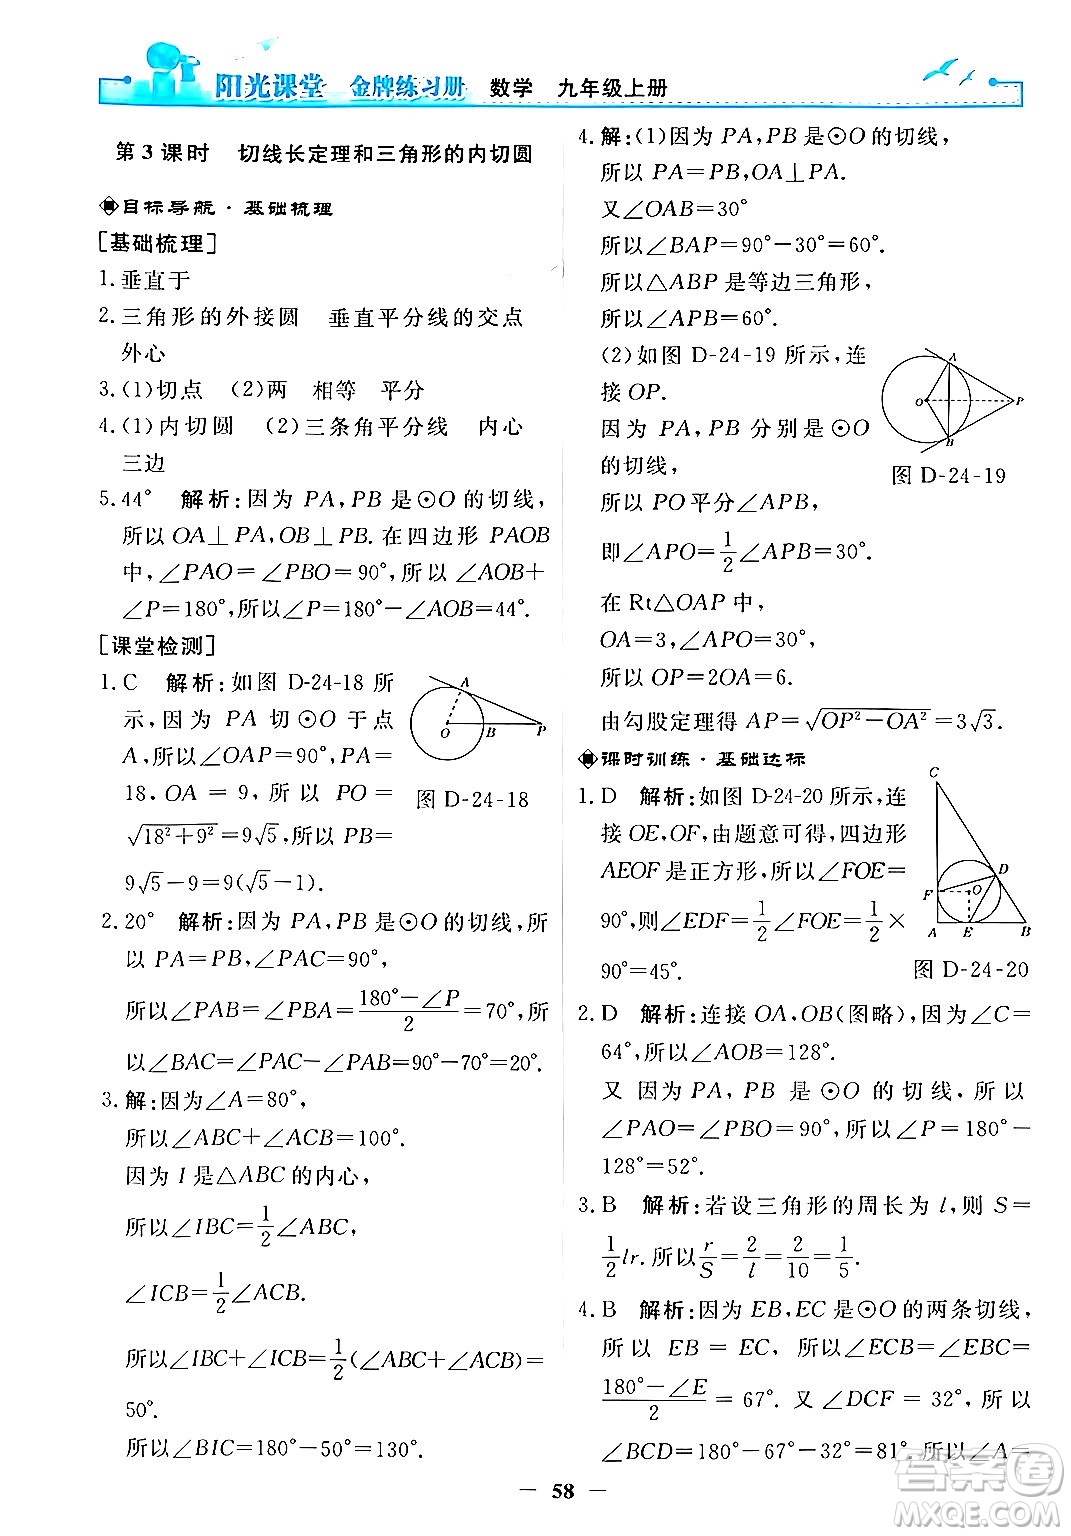 阳光课堂 金牌练习册 数学 九年级上册
第3课时 切线长定理和三角形的内切圆
目标导航·基础梳理
[基础梳理]
1.垂直于
2.三角形的外接圆 垂直平分线的交点
外心
3.(1)切点 (2)两 相等 平分
4.(1)内切圆 (2)三条角平分线 内心
三边
5.44° 解析:因为 PA,PB 是⊙O的切线,
所以 OA⊥PA,OB⊥PB.在四边形 PAOB
中,∠PAO=∠PBO=90°,所以∠AOB+
∠P=180°,所以∠P=180°-∠AOB=44°.
[课堂检测]
1.C 解析:如图 D-24-18 所
示,因为 PA 切⊙O 于点
A,所以∠OAP=90°.PA=
18.OA = 9,所以 PO=
√(18²+9²)=9√5,所以 PB=
9√5-9=9(√5-1).
A
O
B
P
图 D-24-18
2.20° 解析:因为 PA,PB 是⊙O的切线,所
以 PA=PB,∠PAC=90°,
所以∠PAB=∠PBA=(180°-∠P)/2=70°,所
以∠BAC=∠PAC-∠PAB=90°-70°=20°.
3.解:因为∠A=80°,
所以∠ABC+∠ACB=100°.
因为 I 是△ABC 的内心,
所以∠IBC=1/2∠ABC,
∠ICB=1/2∠ACB.
所以∠IBC+∠ICB=1/2(∠ABC+∠ACB)=
50°.
所以∠BIC=180°-50°=130°.
4.解:(1)因为 PA,PB是⊙O的切线,
所以 PA=PB,OA⊥PA.
又∠OAB=30°
所以∠BAP=90°-30°=60°.
所以△ABP是等边三角形,
所以∠APB=60°.
(2)如图 D-24-19 所示,连
接 OP.
因为 PA,PB 分别是⊙O
的切线,
所以 PO平分∠APB,
即∠APO=1/2∠APB=30°.
A
O
P
B
图 D-24-19
在 Rt△OAP 中,
OA=3,∠APO=30°,
所以 OP=2OA=6.
由勾股定理得 AP=√(OP²-OA²)=3√3.
课时训练·基础达标
1.D 解析:如图 D-24-20 所示,连
接 OE,OF,由题意可得,四边形
AEOF是正方形,所以∠FOE=
90°,则∠EDF=1/2∠FOE=1/2×
90°=45°.
C
D
F
O
A
E
B
图 D-24-20
2.D 解析:连接 OA、OB(图略),因为∠C=
64°,所以∠AOB=128°.
又 因为 PA, PB 是⊙O 的切线,所以
∠PAO=∠PBO=90°,所以∠P=180°-
128°=52°.
3.B 解析:若设三角形的周长为 l,则 S=
1/2lr.所以r/S=2/l=2/10=1/5.
4.B 解析:因为EB,EC是⊙O的两条切线,
所以 EB = EC,所以∠ECB=∠EBC=
(180°-∠E)/2 = 67°. 又∠DCF = 32°,所以
∠BCD=180°-67°-32°=81°.所以∠A=
58
答案卷
MXQE.COM